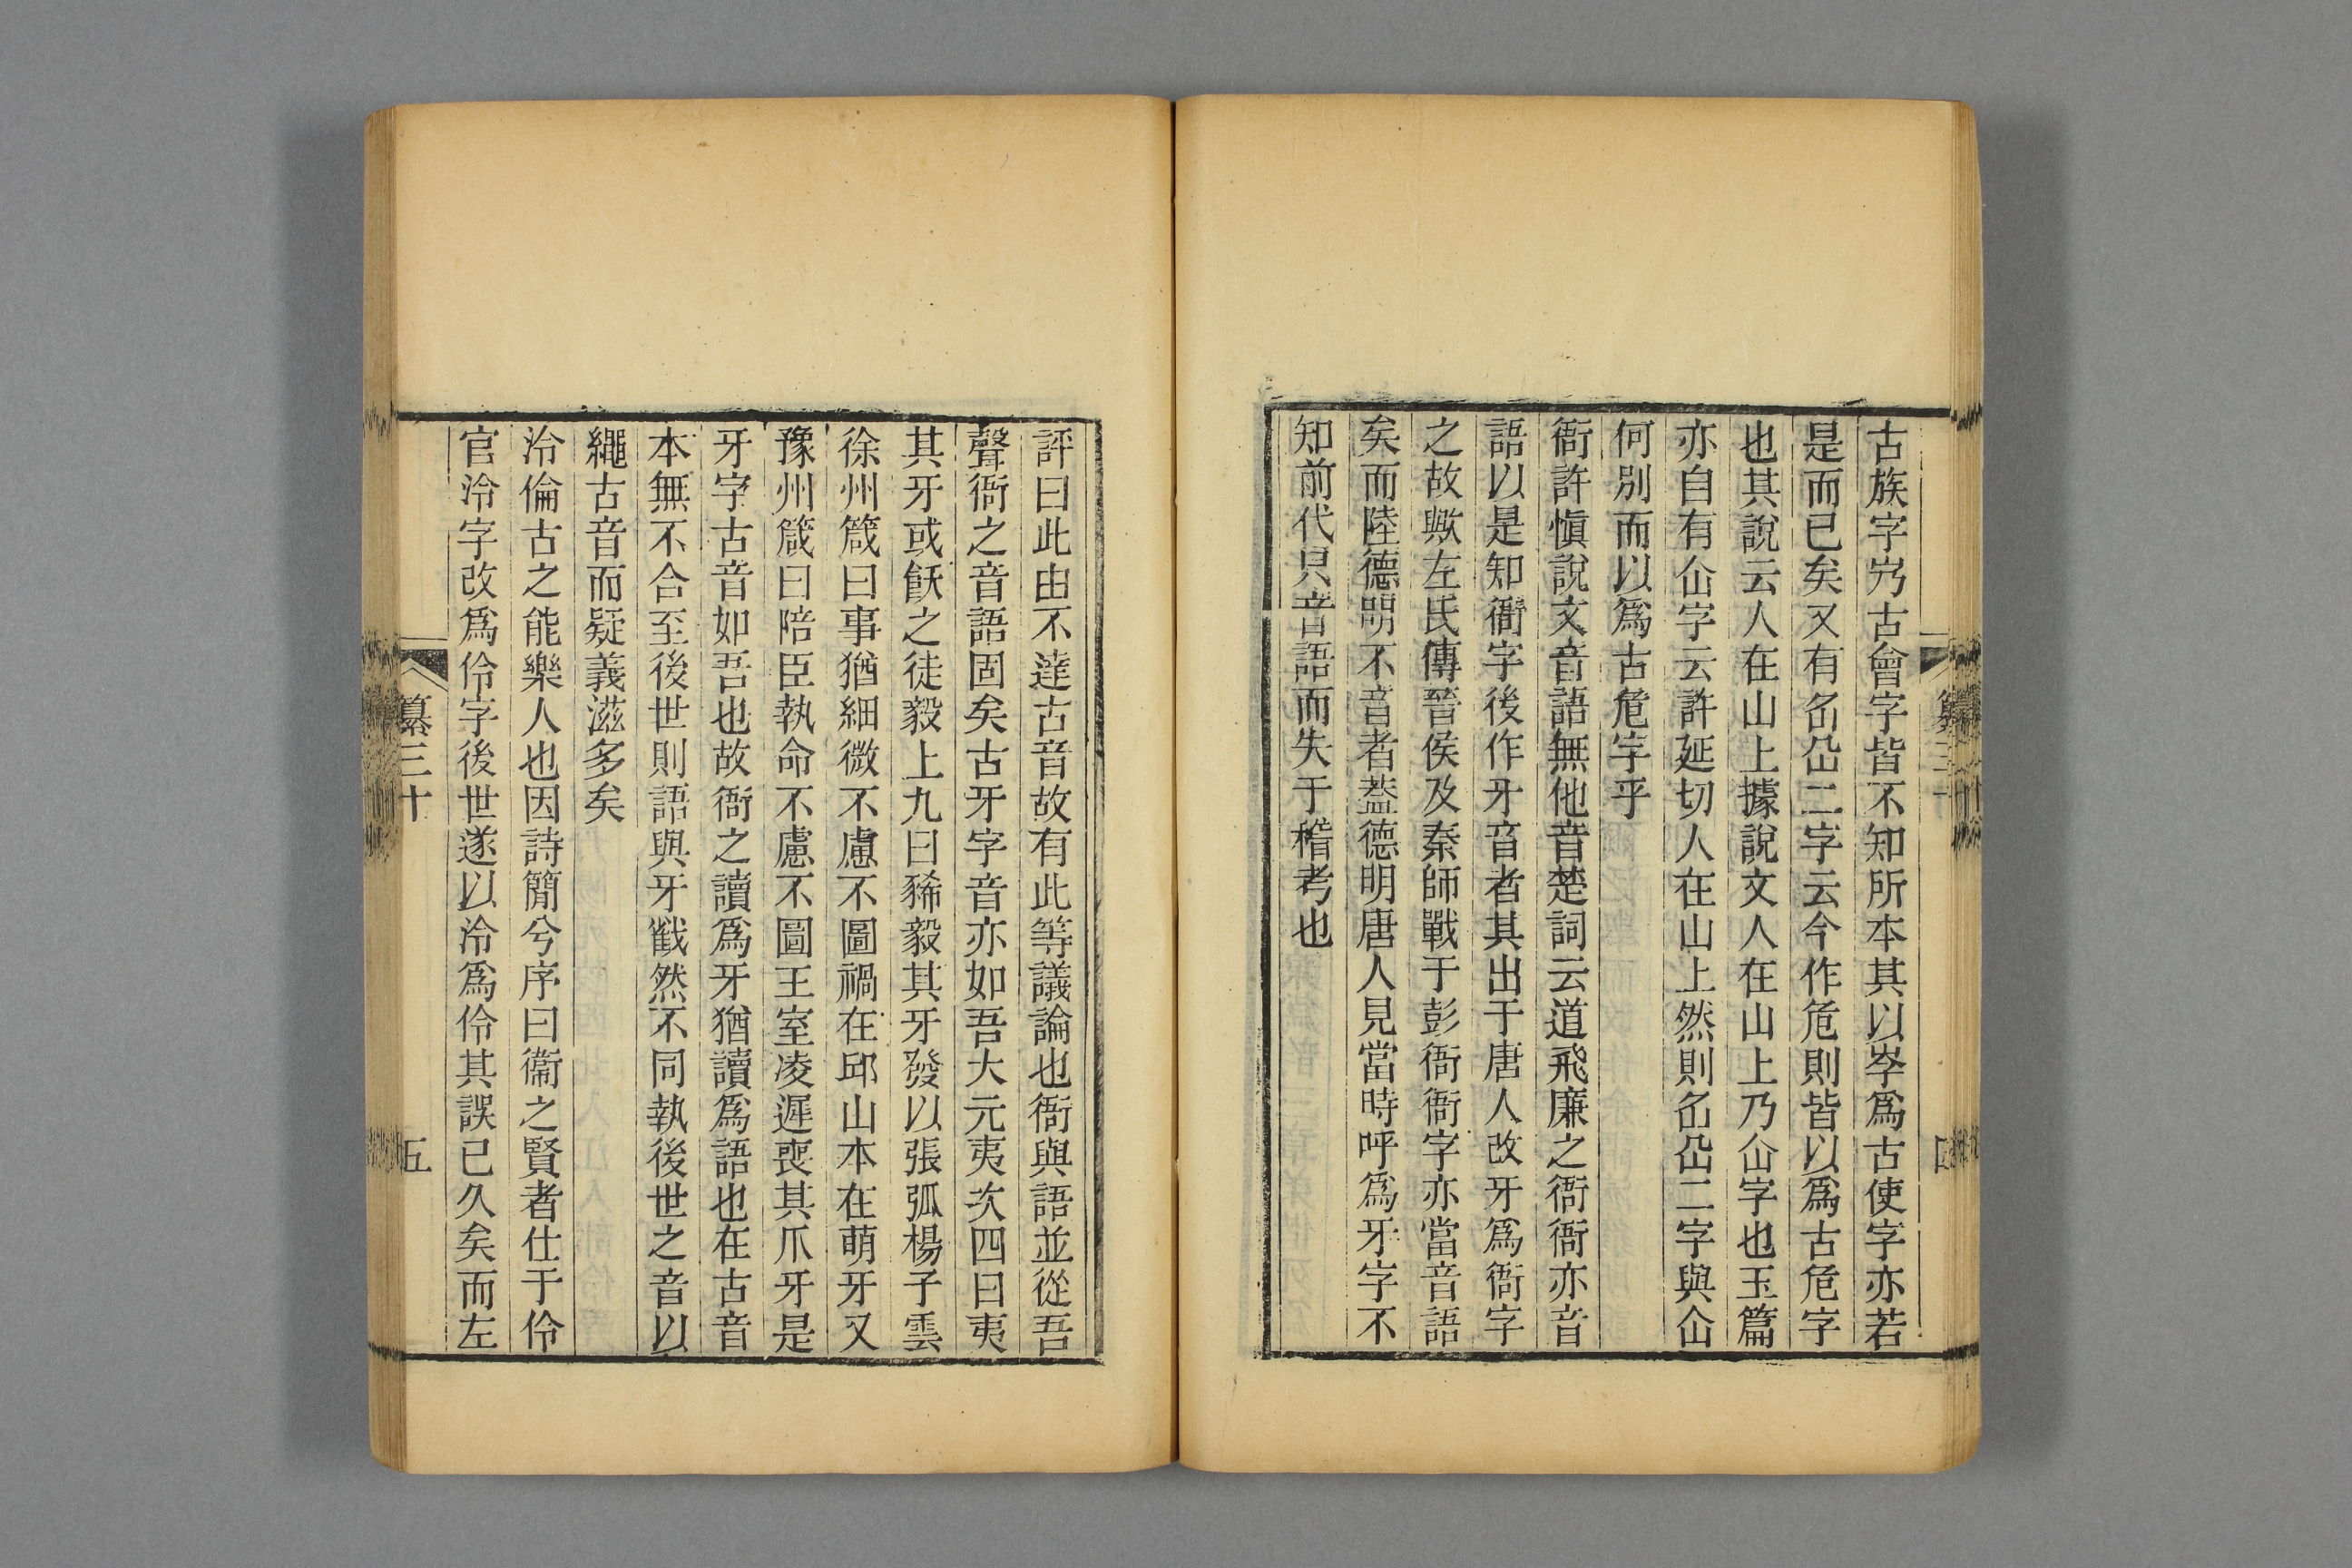 古族字屶古會字皆不知所本其以岺爲古使字亦若
是而已矣又有㕣㕣二字云今作危則皆以爲古危字
也其說云人在山上據說文人在山上乃仚字也玉篇
亦自有仚字云許延切人在山上然則二字與仚
何別而以爲古危字乎
衙許愼說文音語無他音楚詞云道飛廉之衙衙亦音
語以是知衙字後作牙音者其出于唐人改牙爲衙字
之故歟左氏傳晉侯及秦師戰于彭衙衙字亦當音語
矣而陸德明不音者蓋德明唐人見當時呼爲牙字不
知前代只音語而失于稽考也
纂三十
四
評曰此由不達古音故有此等議論也衙與語並從吾
聲衙之音語固矣古牙字音亦如吾大元夷次四曰夷
其牙或飫之徒毅上九曰豨毅其牙發以張弧楊子雲
徐州箴曰事猶細微不慮不圖禍在邱山本在萌牙又
豫州箴曰陪臣執命不慮不圖王室凌遲喪其爪牙是
牙字古音如吾也故衙之讀爲牙猶讀爲語也在古音
本無不合至後世則語與牙戳然不同執後世之音以
繩古音而疑義滋多矣
泠倫古之能樂人也因詩簡兮序曰衞之賢者仕于伶
官泠字改爲伶字後世遂以泠爲伶其誤已久矣而左
纂三十
五